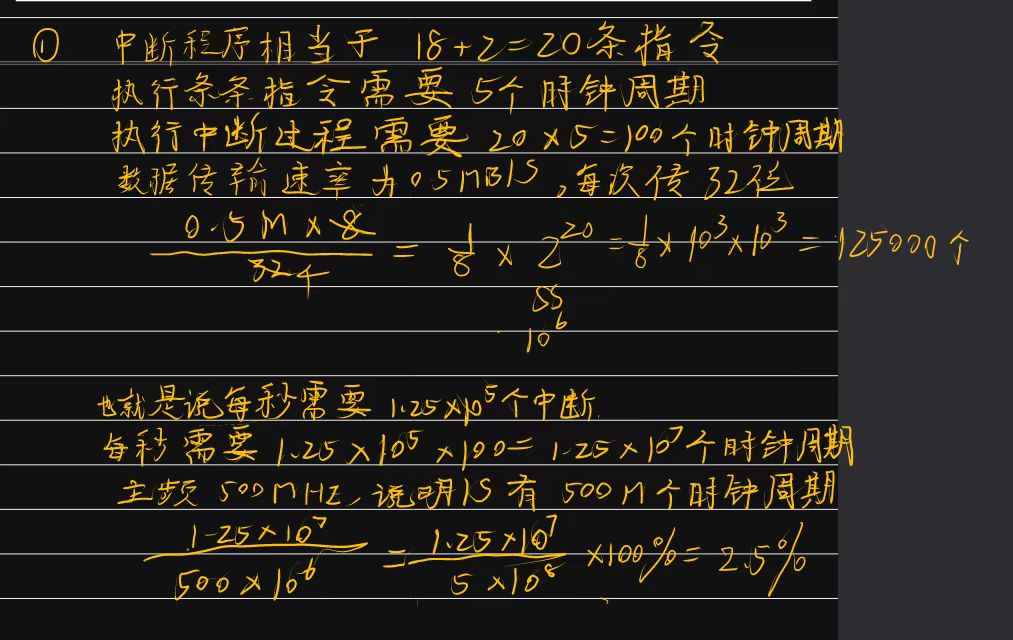 ① 中断程序相当于 18+2=20条指令
执行条条指令需要 5个时钟周期
执行中断过程需要 20×5=100个时钟周期
数据传输速率为0.5MB/S,每次传32位
0.5M×8/32 4 = 1/8 × 2^20 = 1/8 × 10^3 × 10^3 = 125000个
SS
10^6
也就是说每秒需要 1.25×10^5个中断.
每秒需要 1.25×10^5 ×100= 1.25×10^7个时钟周期
主频 500MHZ,说明1S 有 500M个时钟周期
1.25×10^7/500×10^6 = 1.25×10^7/5×10^8 ×100%= 2.5%